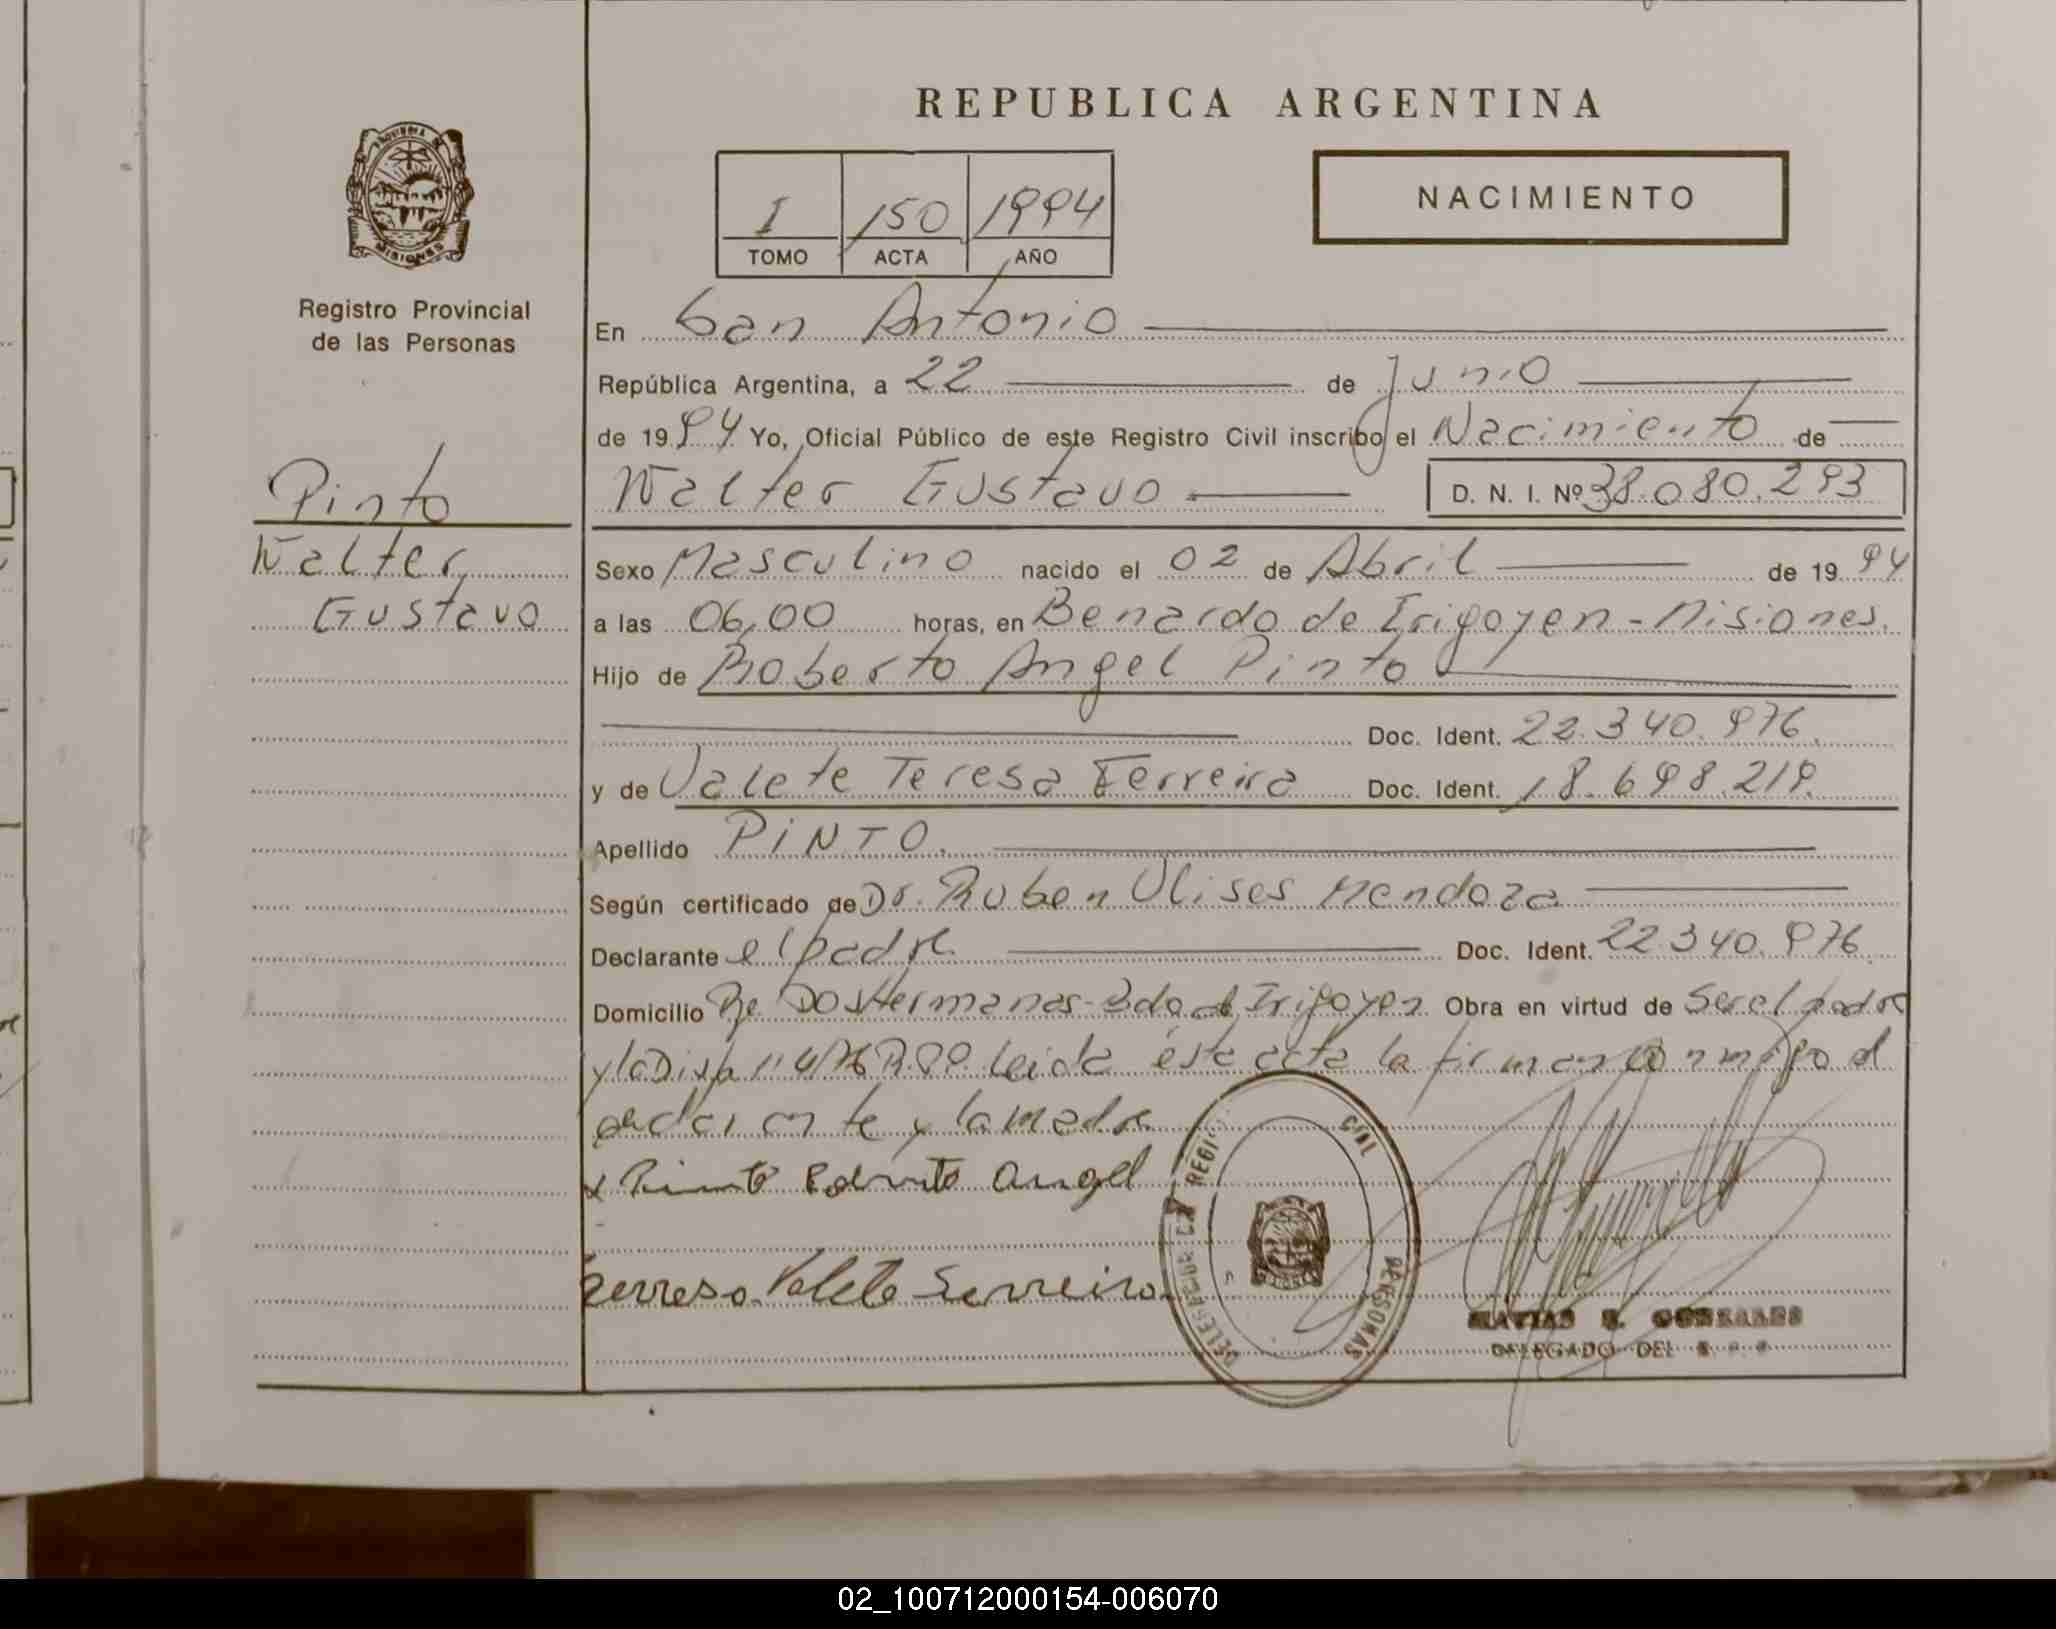 REPUBLICA ARGENTINA
PROVINCIA
MISIONES
Registro Provincial
de las Personas
I 150 1994
TOMO ACTA AÑO
NACIMIENTO
En San Antonio
República Argentina, a 22 de Junio
de 1994 Yo, Oficial Público de este Registro Civil inscribo el Nacimiento de
Pinto
Walter Gustavo D. N. I. Nº 38.080.293
Walter
Gustavo
Sexo Masculino nacido el 02 de Abril de 1994
a las 06,00 horas, en Benardo de Irigoyen - Misiones.
Hijo de Roberto Angel Pinto
Doc. Ident. 22.340.976.
y de Valete Teresa Ferreira Doc. Ident. 18.698.219.
Apellido PINTO.
Según certificado de Dr. Ruben Ulises Mendoza
Declarante el padre Doc. Ident. 22.340.976.
Domicilio Dos Hermanas - Bdo de Irigoyen Obra en virtud de Ser el padre
Leida ésta acta la firman conmigo el
y la madre
x Pinto Roberto Angel
Valete Ferreira
REGI CIAL
PERSONAS
MATIAS GONZALES
DELEGADO DEL
02_100712000154-006070